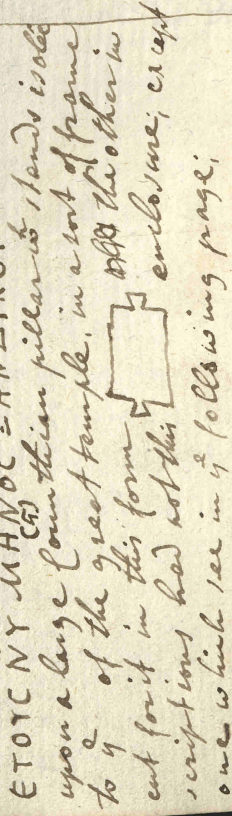 ETOYC NY MHNOC ΞANΔIKO.
(5)
upon a large Corinthian pillar wch stands isolé
to ye of the great temple, in a sort of frame
cut for it in this form the other in
scriptions had not this enclosure; except
one which see in ye following page;